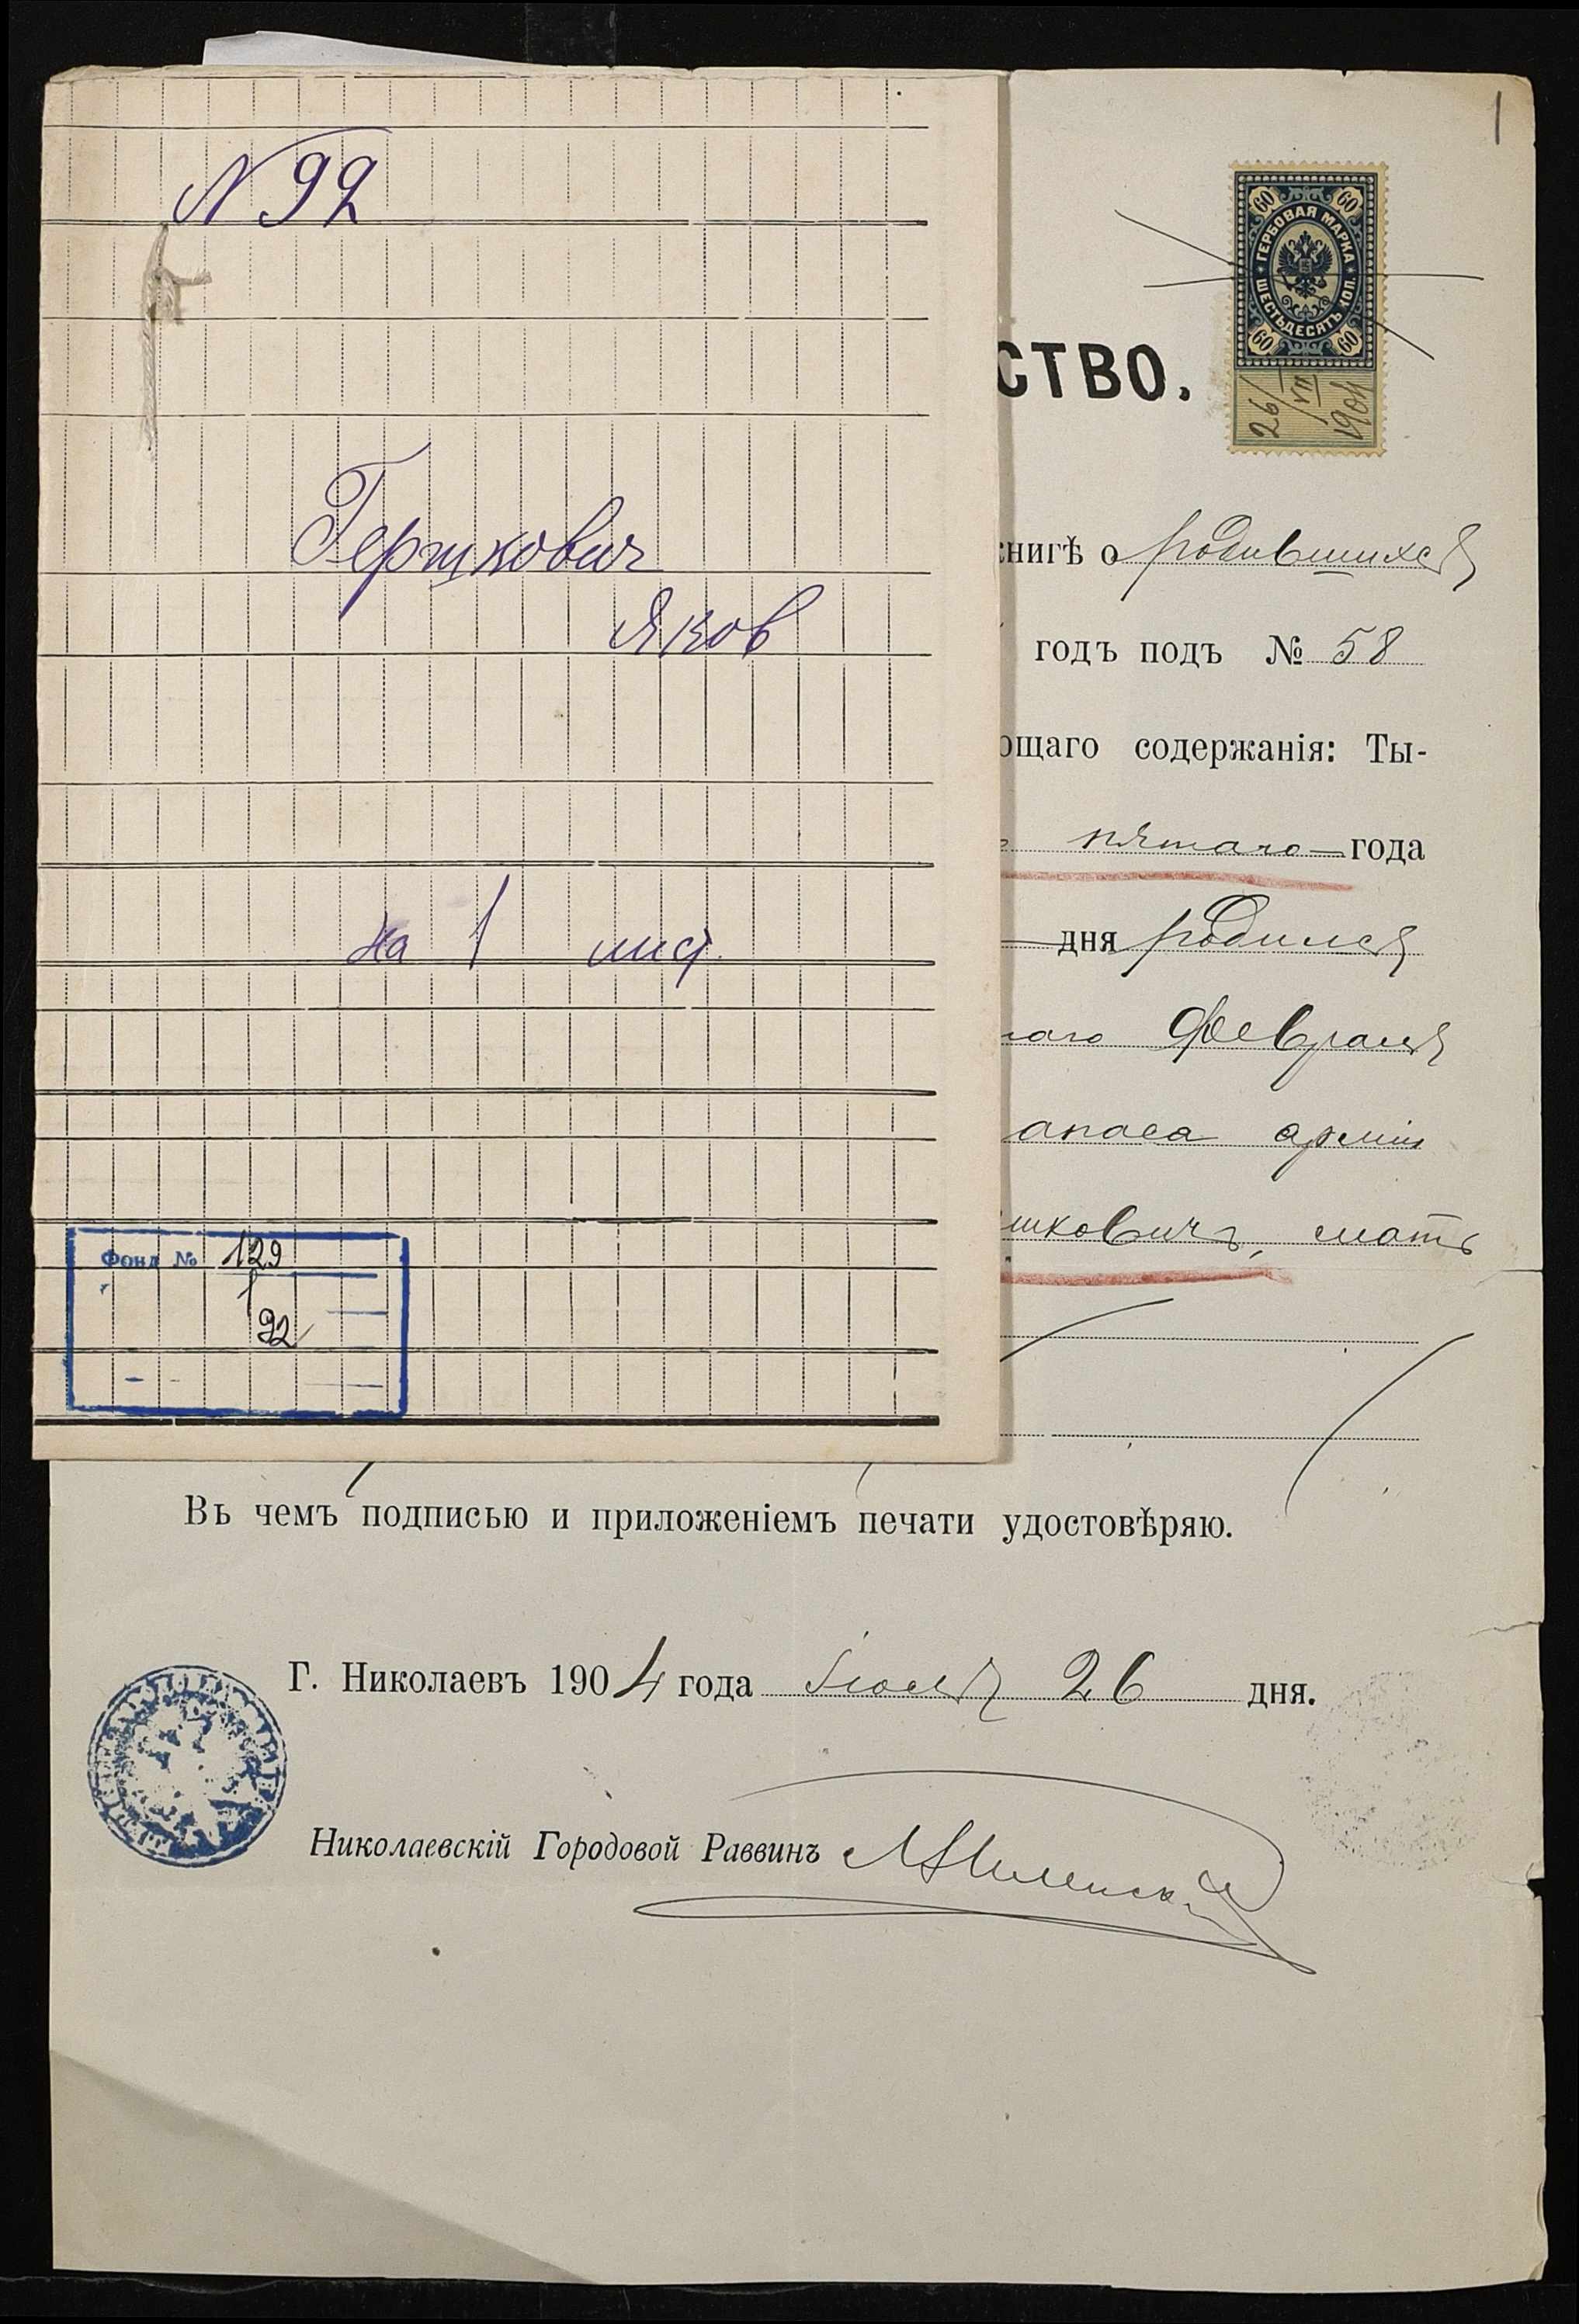 N 92
Гершкович
Яков
на 1 лист.
Фонд № 129
1
92
1
60 60
ГЕРБОВАЯ МАРКА
ШЕСТЬДЕСЯТЪ КОП.
60 60
26/VII 1904
СТВО.
книгѣ о родившихся
годъ подъ № 58
ющаго содержанія: Ты-
пятаго года
дня родился
Февраля
апаса арміи
шковичъ, мать
Въ чемъ подписью и приложеніемъ печати удостовѣряю.
Г. Николаевъ 1904 года Іюля 26 дня.
Николаевскій Городовой Раввинъ